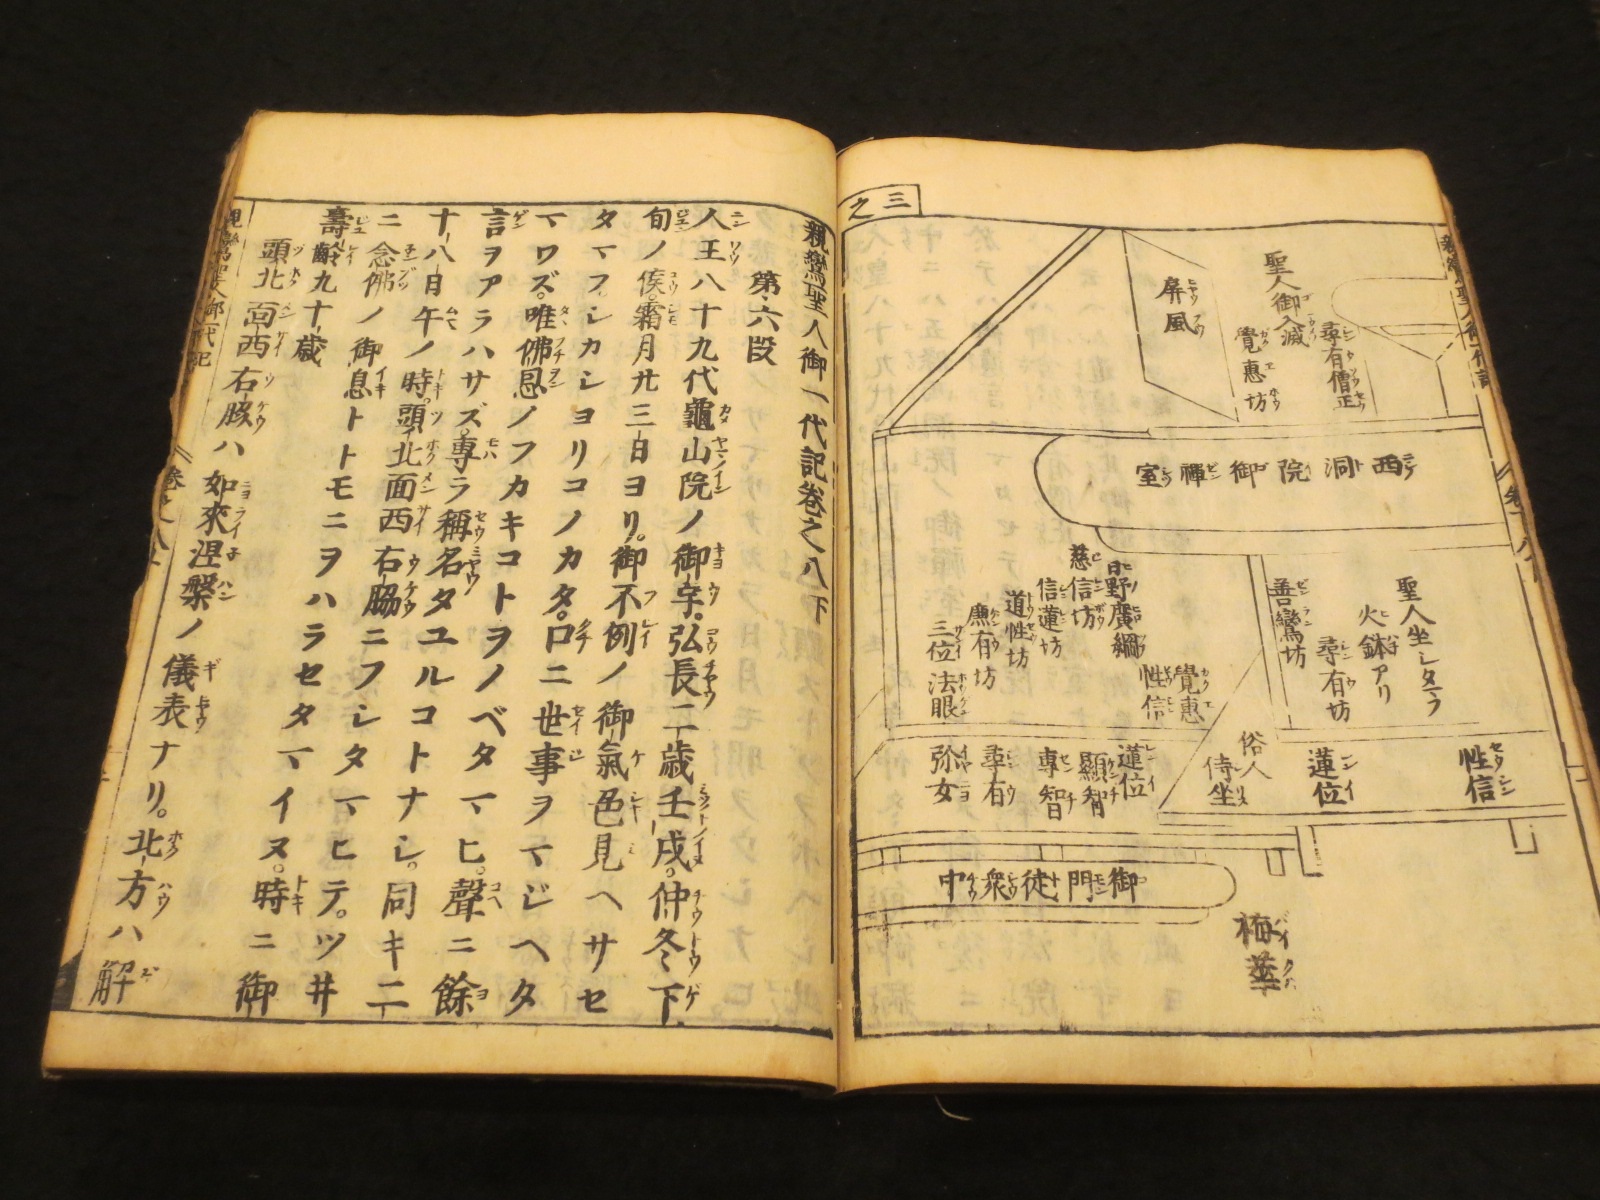 三之
聖人御入滅
尋有僧正
覺惠坊
屏風
西洞院御禪室
聖人坐シタマフ
火鉢アリ
尋有坊
善鸞坊
日野廣綱
慈信坊
信蓮坊
道性坊
三位法眼
覺惠
性信
性信
蓮位
俗人
侍坐
蓮位
顯智
專智
尋有
弥女
御門徒衆中
梅華
親鸞聖人御一代記卷之八下
第六段
人王八十九代龜山院ノ御宇。弘長二歳壬戌。仲冬下
旬ノ候。霜月廿三日ヨリ。御不例ノ御氣色見ヘサセ
タマフ。シカシヨリコノカタ。口ニ世事ヲマジヘタ
マワズ。唯佛恩ノフカキコトヲノベタマヒ。聲ニ餘
言ヲアラハサズ。專ラ稱名タユルコトナシ。同キ二
十八日午ノ時。頭北面西右脇ニフシタマヒテ。ツ井
ニ念佛ノ御息トトモニヲハラセタマイヌ。時ニ御
壽齡九十歳
頭北面西右脇ハ如來涅槃ノ儀表ナリ。北方ハ解